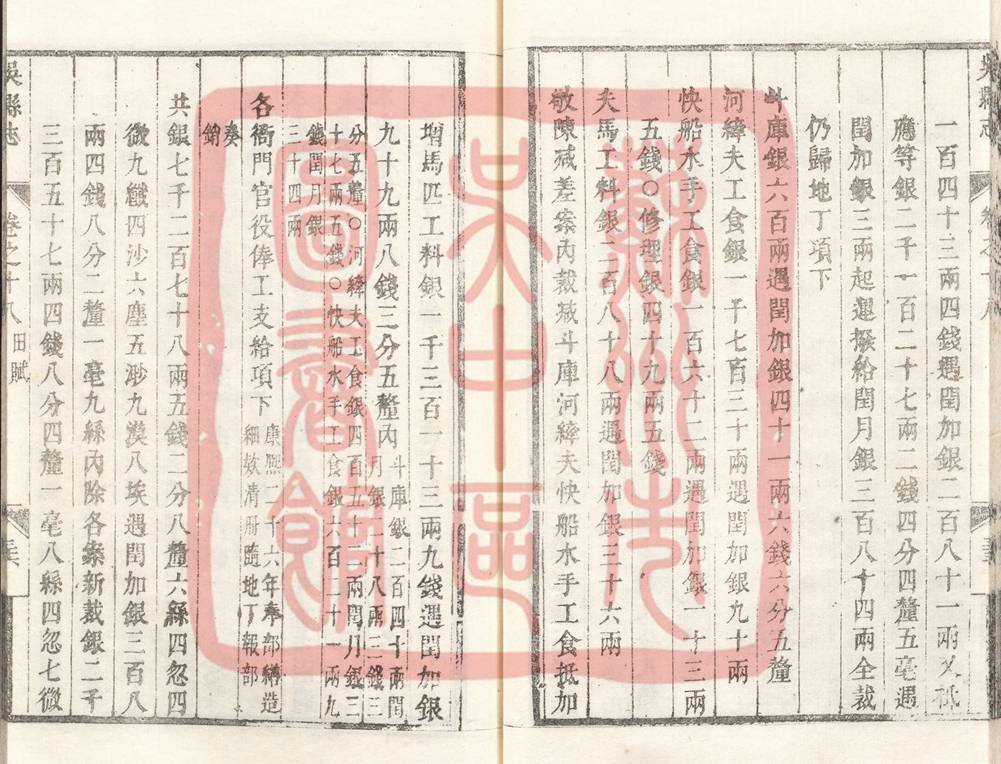 吳縣志
一百四十三兩四錢遇閏加銀二百八十一兩又祗
應等銀二千一百二十七兩二錢四分四釐五毫遇
閏加銀三兩起運撥給閏月銀三百八十四兩全裁
仍歸地丁項下
斗庫銀六百兩遇閏加銀四十一兩六錢六分五釐
河縴夫工食銀一千七百三十兩遇閏加銀九十兩
快船水手工食銀一百六十二兩遇閏加銀一十三兩
五錢○修理銀四十九兩五錢
夫馬工料銀二百八十八兩遇閏加銀三十六兩
敬陳減差案內裁減斗庫河縴夫快船水手工食抵加
增馬匹工料銀一千三百一十三兩九錢遇閏加銀
九十九兩八錢三分五釐內
斗庫銀二百四十兩閏
月銀二十八兩三錢三
分五釐○河縴夫工食銀四百五十二兩閏月銀三
十七兩五錢○快船水手工食銀六百二十一兩九
錢閏月銀
三十四兩
各衙門官役俸工支給項下
康熙二十六年奉部繕造
細欵清冊隨地丁報部
奏
銷
共銀七千二百七十八兩五錢二分八釐六絲四忽四
微九纖四沙六塵五渺九漠八埃遇閏加銀三百八
兩四錢八分二釐一毫九絲內除各案新裁銀二千
三百五十七兩四錢八分四釐一毫八絲四忽七微
吳縣志
卷之十八
田賦
蘇州市
吳中區
圖書館